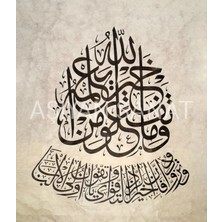 وما تفعلوا من خير يعلمه الله
وتزودوا فإن خير الزاد التقوى واتقون يا أولي الألباب